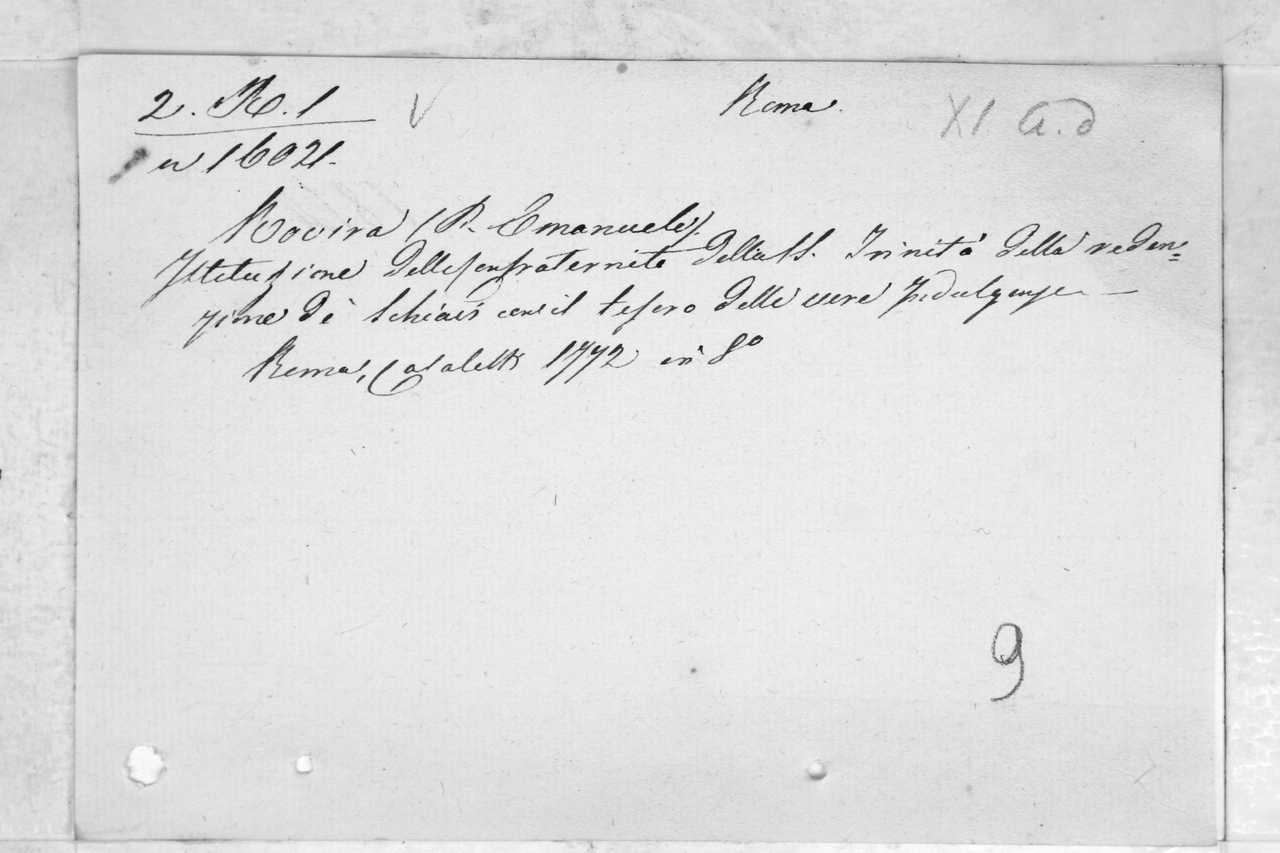 2. R. 1
Roma.
XI a.d
16021.
Rovira (P. Emanuele).
Istituzione delle confraternite della SS. Trinità della reden=
zione di Schiavi con il tesoro delle vere Indulgenze —
Roma, Casaletti 1772 in 8º
9